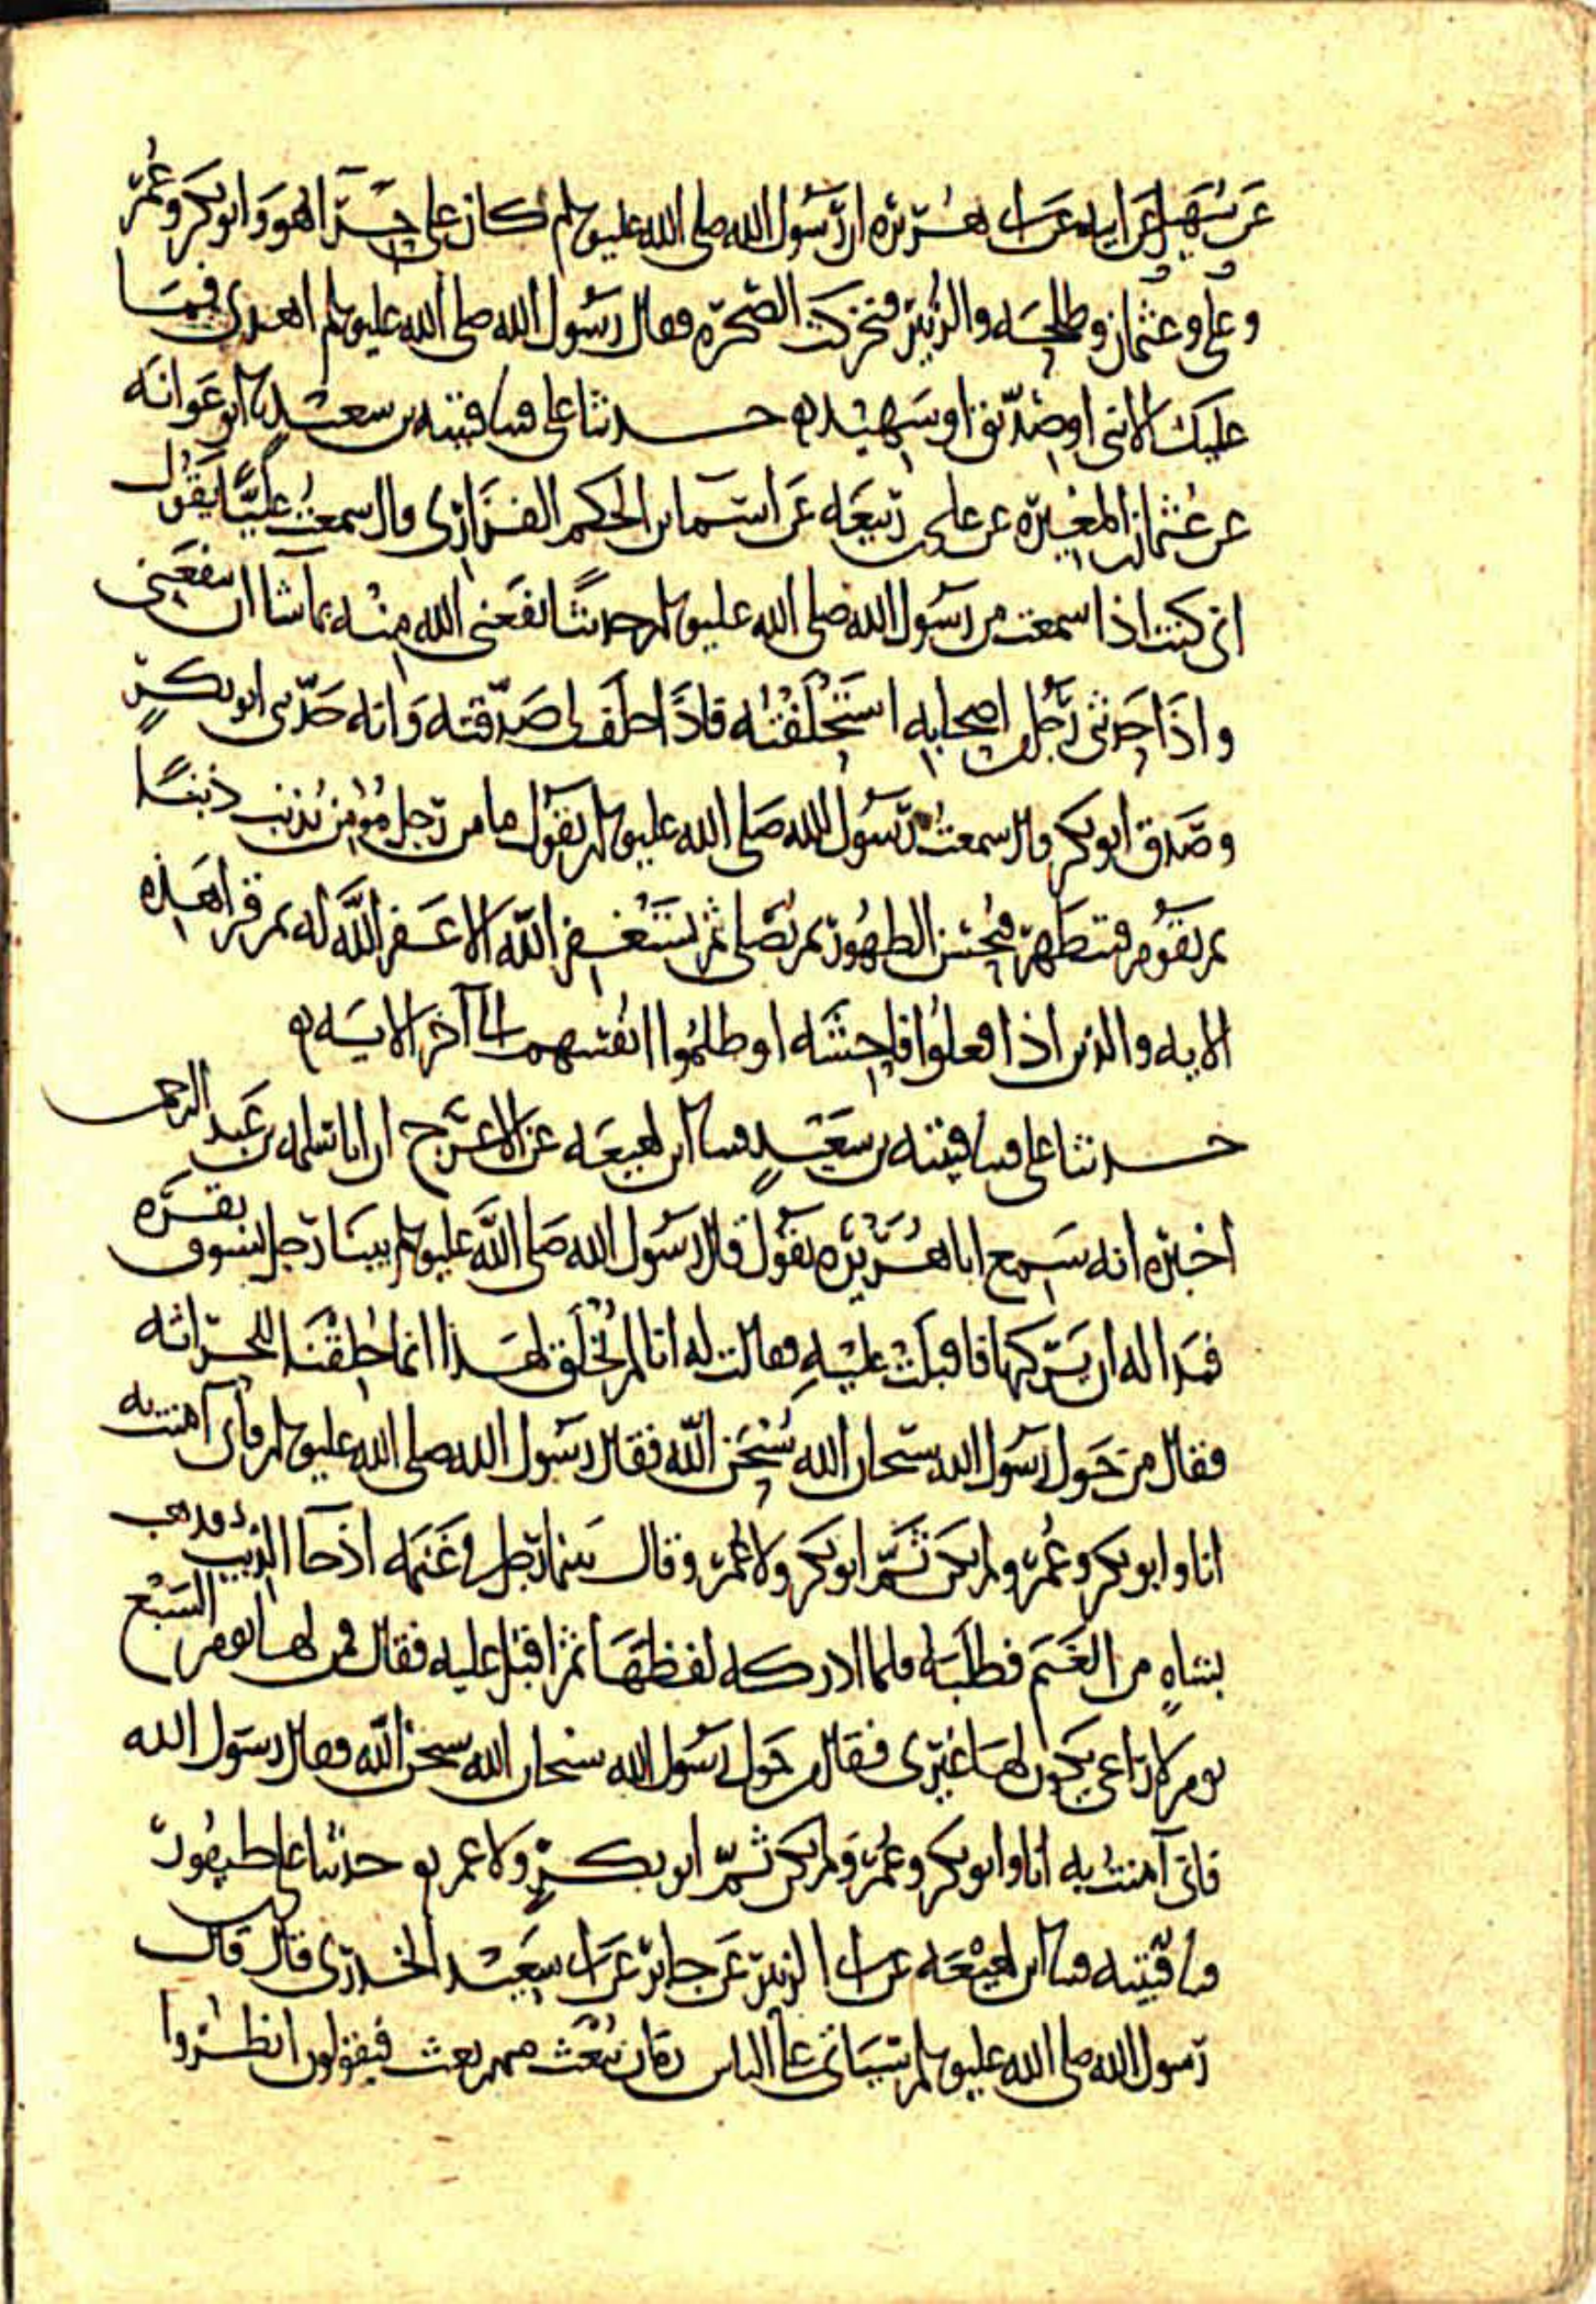 عن سهيل عن ابيه عن ابي هريرة ان رسول الله صلى الله عليه وسلم كان على حرا هو وابو بكر وعمر
وعلي وعثمان وطلحه والزبير فتحركت الصخره فقال رسول الله صلى الله عليه وسلم اهدى فما
عليك الا نبي او صديق او شهيد حدثنا علي قثنا قتيبه بن سعيد نا ابو عوانه
عن عثمان بن المغيره عن علي بن ربيعه عن اسما بن الحكم الفزاري قال سمعت عليا يقول
اني كنت اذا سمعت من رسول الله صلى الله عليه وسلم حديثا نفعني الله منه بما شا ان ينفعني
واذا حدثني رجل من اصحابه استحلفته فاذا حلف لي صدقته وانه حدثني ابو بكر
وصدق ابو بكر قال سمعت رسول الله صلى الله عليه وسلم يقول ما من رجل مؤمن يذنب ذنبا
ثم يقوم فيتطهر فيحسن الطهور ثم يصلي ثم يستغفر الله الا غفر الله له ثم قرا هذه
الايه والذين اذا فعلوا فاحشه او ظلموا انفسهم الى آخر الايه
حدثنا علي قثنا قتيبه بن سعيد قثنا ابن لهيعه عن الاعرج ان ابا سلمه بن عبد الرحمن
اخبره انه سمع ابا هريره يقول قال رسول الله صلى الله عليه وسلم بينا رجل يسوق بقره
فبدا له ان يركبها فاقبلت عليه فقالت له انا لم نخلق لهذا انما خلقنا للحراثه
فقال من حول رسول الله سبحان الله سبحن الله فقال رسول الله صلى الله عليه وسلم فاني آمنت به
انا وابو بكر وعمر ولم يكن ثم ابو بكر ولا عمر وقال بينما رجل في غنمه اذ جا الذيب فذهب
بشاه من الغنم فطلبه فلما ادركه لفظها ثم اقبل عليه فقال فمن لها يوم السبع
يوم لا راعي يكون لها غيري فقال من حول رسول الله سبحان الله سبحن الله فقال رسول الله
فاني آمنت به انا وابو بكر وعمر ولم يكن ثم ابو بكر ولا عمر حدثنا علي بن طيفور
قثنا قتيبه قثنا ابن لهيعه عن ابي الزبير عن جابر عن ابي سعيد الخدري قال قال
رسول الله صلى الله عليه وسلم سياتي على الناس زمان يبعث منهم بعث فيقولون انظروا